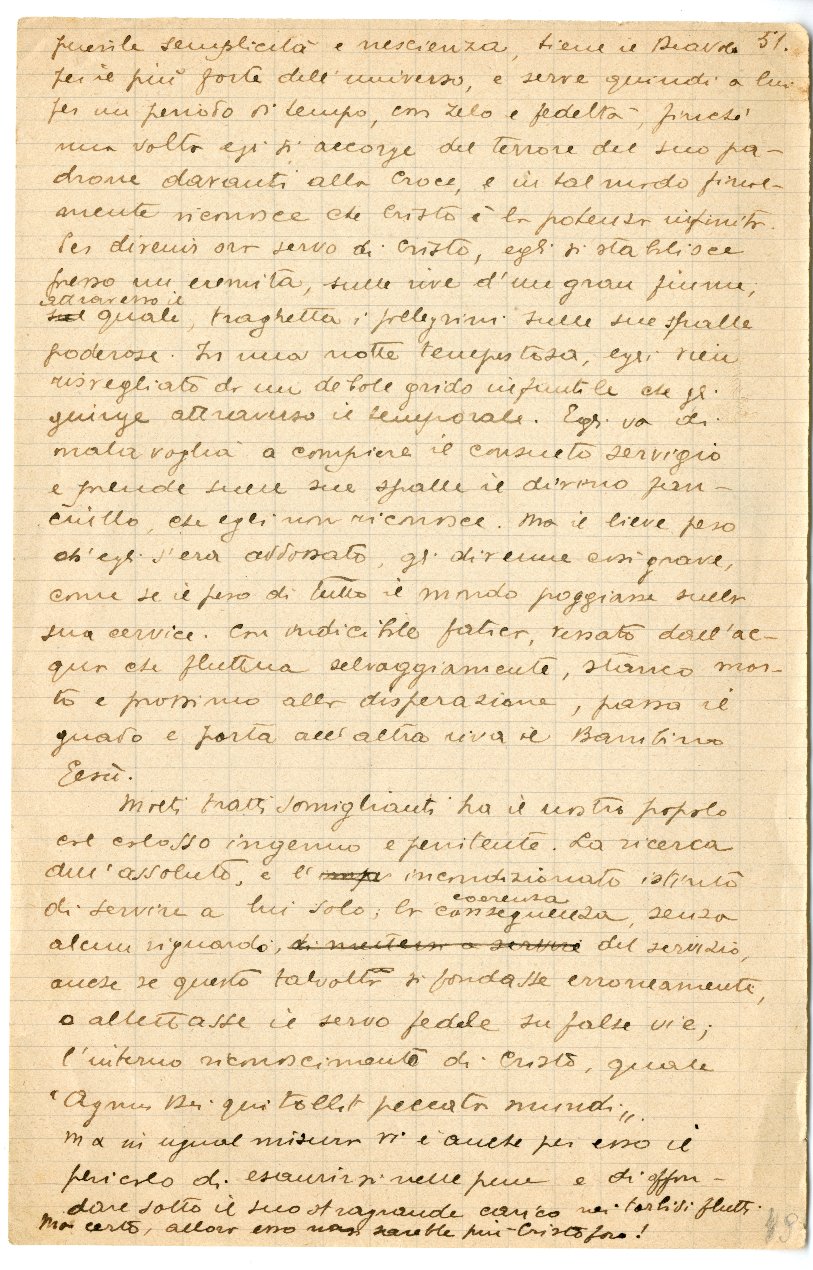 51.
puerile semplicità e nescienza, tiene il Diavolo
per il più forte dell'universo, e serve quindi a lui
per un periodo di tempo, con zelo e fedeltà, finché
una volta egli si accorge del terrore del suo pa-
drone davanti alla Croce, e in tal modo final-
mente riconosce che Cristo è la potenza infinita.
Per divenir ora servo di Cristo, egli si stabilisce
presso un eremita, sulle rive d'un gran fiume,
attraverso il
sul quale, traghetta i pellegrini sulle sue spalle
poderose. In una notte tempestosa, egli vien
risvegliato da un debole grido infantile che gli
giunge attraverso il temporale. Egli va di
mala voglia a compiere il consueto servigio
e prende sulle sue spalle il divino fan-
ciullo, che egli non riconosce. Ma il lieve peso
ch'egli s'era addossato, gli divenne così grave,
come se il peso di tutto il mondo poggiasse sulla
sua cervice. Con indicibile fatica, vessato dall'ac-
qua che fluttua selvaggiamente, stanco mor-
to e prossimo alla disperazione, passa il
guado e porta all'altra riva il Bambino
Gesù.
Molti tratti somiglianti ha il nostro popolo
col colosso ingenuo e penitente. La ricerca
dell'assoluto, e l' incondizionato istinto
coerenza
di servire a lui solo; la conseguenza, senza
alcun riguardo, di mettersi a servire del servizio,
anche se questo talvolta si fondasse erroneamente,
o allettasse il servo fedele su false vie;
l'interno riconoscimento di Cristo, quale
"Agnus Dei qui tollit peccata mundi„.
Ma in ugual misura vi è anche per esso il
pericolo di esaurirsi nelle pene e di affon-
dare sotto il suo stragrande carico nei torbidi flutti.
Ma certo, allora esso non sarebbe più Cristoforo!
49